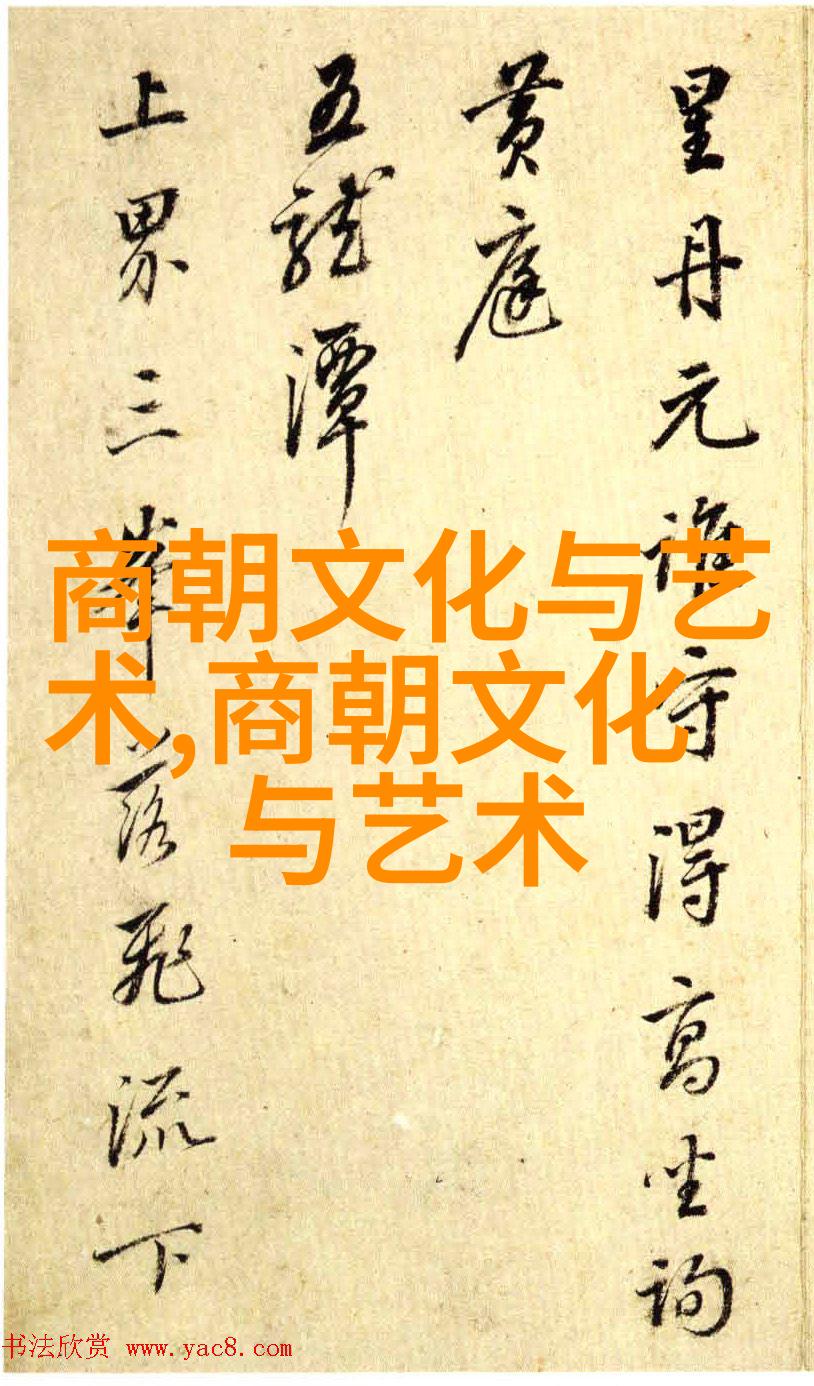 星丹元谁守得高坐询
黄庭
五龙潭
上界三峰落飞流下
商朝文化与艺
术,商朝文化
与艺术
书法欣赏 www.yac8.com